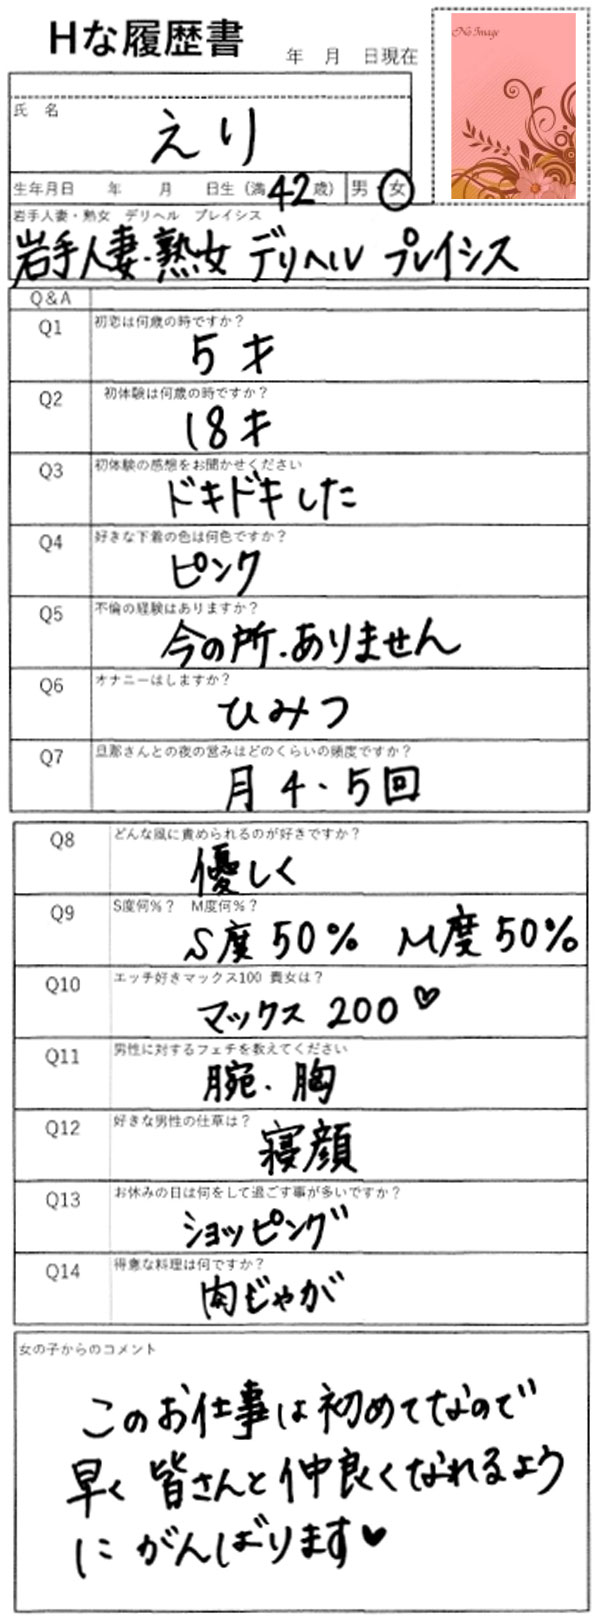 Hな履歴書
年 月 日現在
No Image
氏 名
えり
生年月日 年 月 日生 (満42歳) 男・女
岩手人妻・熟女 デリヘル プレイシス
岩手人妻・熟女 デリヘル プレイシス
Q&A
Q1 初恋は何歳の時ですか?
5才
Q2 初体験は何歳の時ですか?
18才
Q3 初体験の感想をお聞かせください
ドキドキした
Q4 好きな下着の色は何色ですか?
ピンク
Q5 不倫の経験はありますか?
今の所.ありません
Q6 オナニーはしますか?
ひみつ
Q7 旦那さんとの夜の営みはどのくらいの頻度ですか?
月4・5回
Q8 どんな風に責められるのが好きですか?
優しく
Q9 S度何%? M度何%?
S度50% M度50%
Q10 エッチ好きマックス100 貴女は?
マックス 200♡
Q11 男性に対するフェチを教えてください
腕・胸
Q12 好きな男性の仕草は?
寝顔
Q13 お休みの日は何をして過ごす事が多いですか?
ショッピング
Q14 得意な料理は何ですか?
肉じゃが
女の子からのコメント
このお仕事は初めてなので
早く皆さんと仲良くなれるよう
にがんばります♥